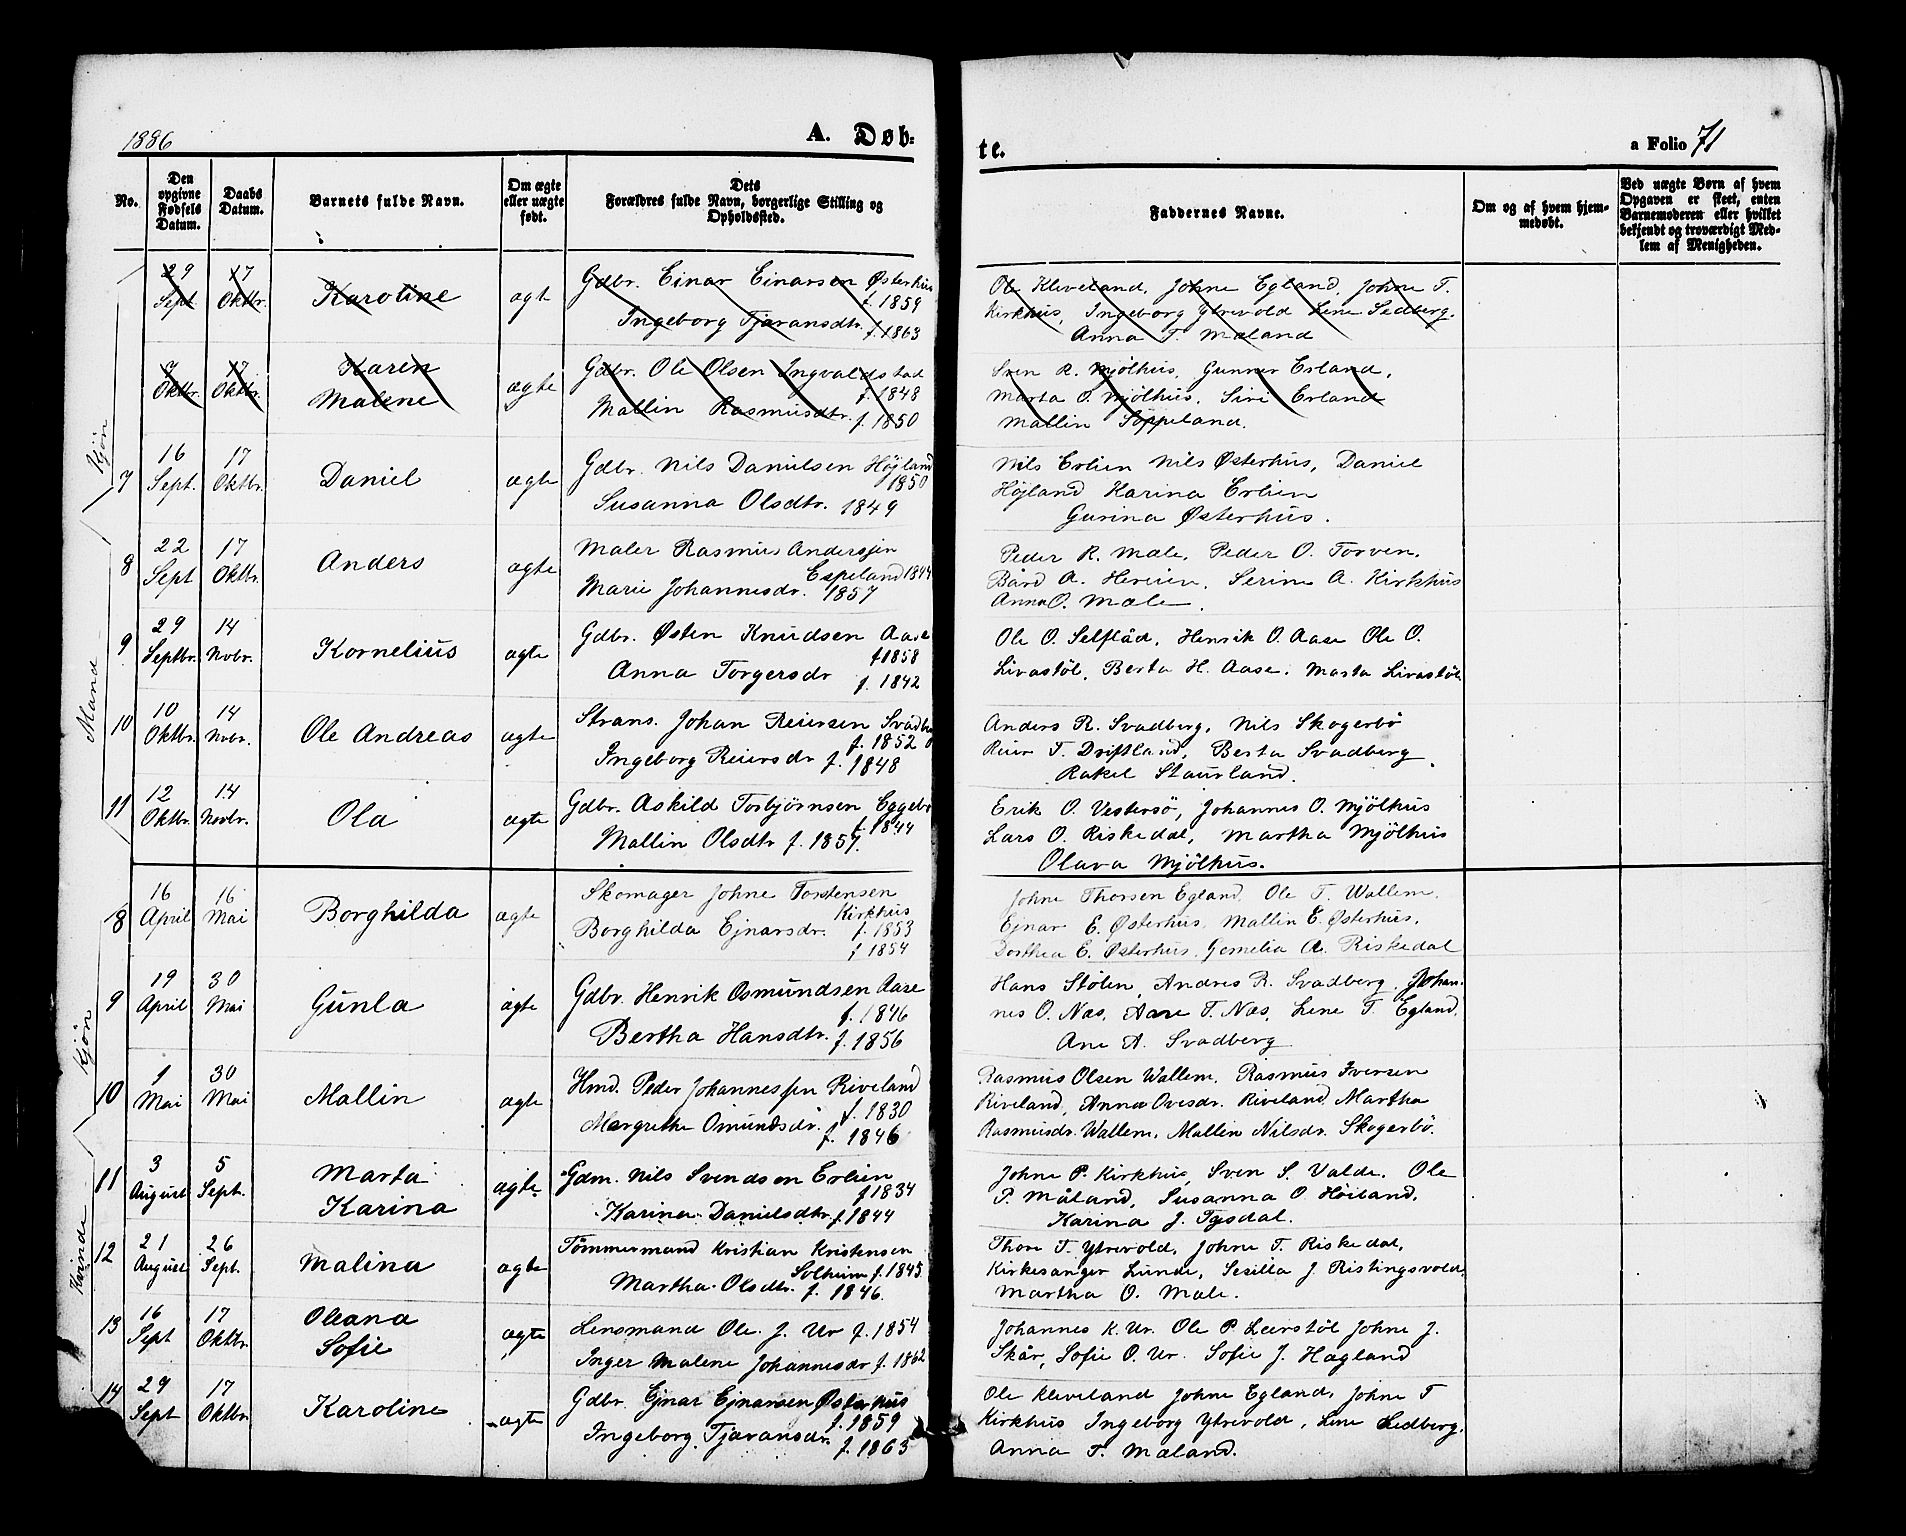 1886
A. Døb-
te.
a Folio 71
No.
Den opgivne Fødsels Datum.
Daabs Datum.
Barnets fulde Navn.
Om ægte eller uægte født.
Dets Forældres fulde Navn, borgerlige Stilling og Opholdssted.
Faddernes Navne.
Om og af hvem hjemmedøbt.
Ved uægte Børn af hvem Opgaven er skeet, enten Barnemoderen eller hvilket bekjendt og troværdigt Medlem af Menigheden.
Mand Kjøn
29 Sept 17 Oktbr. Karoline ægt Gdbr. Einar Einarsen Østerhus f. 1859
Ingeborg Tjøransdtr. f. 1863
Ole Kleveland, Johne Egland, Johne T.
Kirkhus, Ingeborg Ytrevold Lene Sedberg.
Anna T. Mæland
7 Oktbr. 17 Oktbr. Karen Malene ægte Gdbr. Ole Olsen Ingvaldstad f. 1848
Mallin Rasmusdtr. f. 1850
Sven R. Mjølhus, Gunner Erland,
Marta O. Mjølhus, Siri Erland
Mallin Søppeland.
7 16 Sept. 17 Oktbr. Daniel ægte Gdbr. Nils Danielsen Højland 1850
Susanna Olsdtr. 1849
Nils Erlien Nils Østerhus, Daniel
Højland Karina Erlien
Gurina Østerhus.
8 22 Sept 17 Oktbr. Anders ægte Maler Rasmus Andersjen
Espeland 1844
Marie Johannesdr. 1857
Peder R. Mæle, Peder O. Torven,
Bård A. Hereien, Serine A. Kirkhus
Anna O. Mæle.
9 29 Septbr. 14 Novbr. Kornelius ægte Gdbr. Østen Knudsen Aase f 1858
Anna Torgersdr f. 1842
Ole O. Selstad, Henrik O. Aase Ole O.
Livastøl, Berta H. Aase, Marta Livastøl
10 10 Oktbr. 14 Nvbr. Ole Andreas ægte Strans. Johan Reiersen Svadberg f. 1852
Ingeborg Reiersdr f. 1848
Anders R. Svadberg, Nils Skogerbö
Reier T. Driftland, Berta Svadberg,
Rakel Staurland.
11 12 Oktbr. 14 Novbr. Ola ægte Gdbr. Askild Torbjørnsen Eggebø f. 1844
Mallin Olsdtr f. 1857.
Erik O. Vestersö, Johannes O. Mjölhus
Lars O. Riskedal, Martha Mjölhus
Olava Mjölhus.
Kvinde Kjøn
8 16 April 16 Mai Borghilda ægte Skomager Johne Torstensen
Kirkhus f. 1853
Borghilda Ejnarsdr. f 1854
Johne Thorsen Egland, Ole T. Wallem,
Ejnar E. Østerhus, Mallin E. Østerhus,
Dorthea E. Østerhus, Gemelia A. Riskedal
9 19 April 30 Mai Gunla ægte Gdbr. Henrik Osmundsen Aase f. 1846
Bertha Hansdtr. f. 1856
Hans Stölen, Andres R. Svadberg, Johan-
nes O. Næs, Aase T. Næs, Lene T. Egland,
Ane A. Svadberg
10 1 Mai 30 Mai Mallin ægte Hmd. Peder Johannessen Riveland f. 1830
Margrethe Omundsdr. f. 1846
Rasmus Olsen Wallem, Rasmus Iversen
Riveland, Anna Ovesdr. Riveland, Martha
Rasmusdr. Wallem, Mallin Nilsdr. Skogerbö.
11 3 August 5 Sept. Marta Karina ægte Gdm. Nils Svendsen Erlien f 1834
Karina Danielsdtr. f 1844
Johne P. Kirkhus, Sven S. Valde, Ole
P. Måland, Susanna O. Höiland,
Karina J. Tysdal.
12 21 August 26 Sept. Malina ægte Tömmermand Kristian Kristensen
Solheim f. 1845
Martha Olsdtr. f. 1846.
Thore T. Ytrevold, Johne T. Riskedal,
Kirkesanger Lunde, Sesilla J. Ristingsvold,
Martha O. Mæle.
13 16 Sept 17 Oktbr Oleana Sofie ægte Lensmand Ole J. Ur f. 1854
Inger Malene Johannesdr f. 1862
Johannes K. Ur. Ole P. Leirstøl Johne J.
Skår, Sofie O. Ur. Sofie J. Hægland
14 29 Sept 17 Oktbr. Karoline ægte Gdbr. Ejnar Ejnarsen Østerhus f. 1859
Ingeborg Tjøransdr. f. 1863
Ole Kleveland Johne Egland, Johne T
Kirkhus Ingeborg Ytrevold, Lene Sedberg,
Anna T. Mæland.